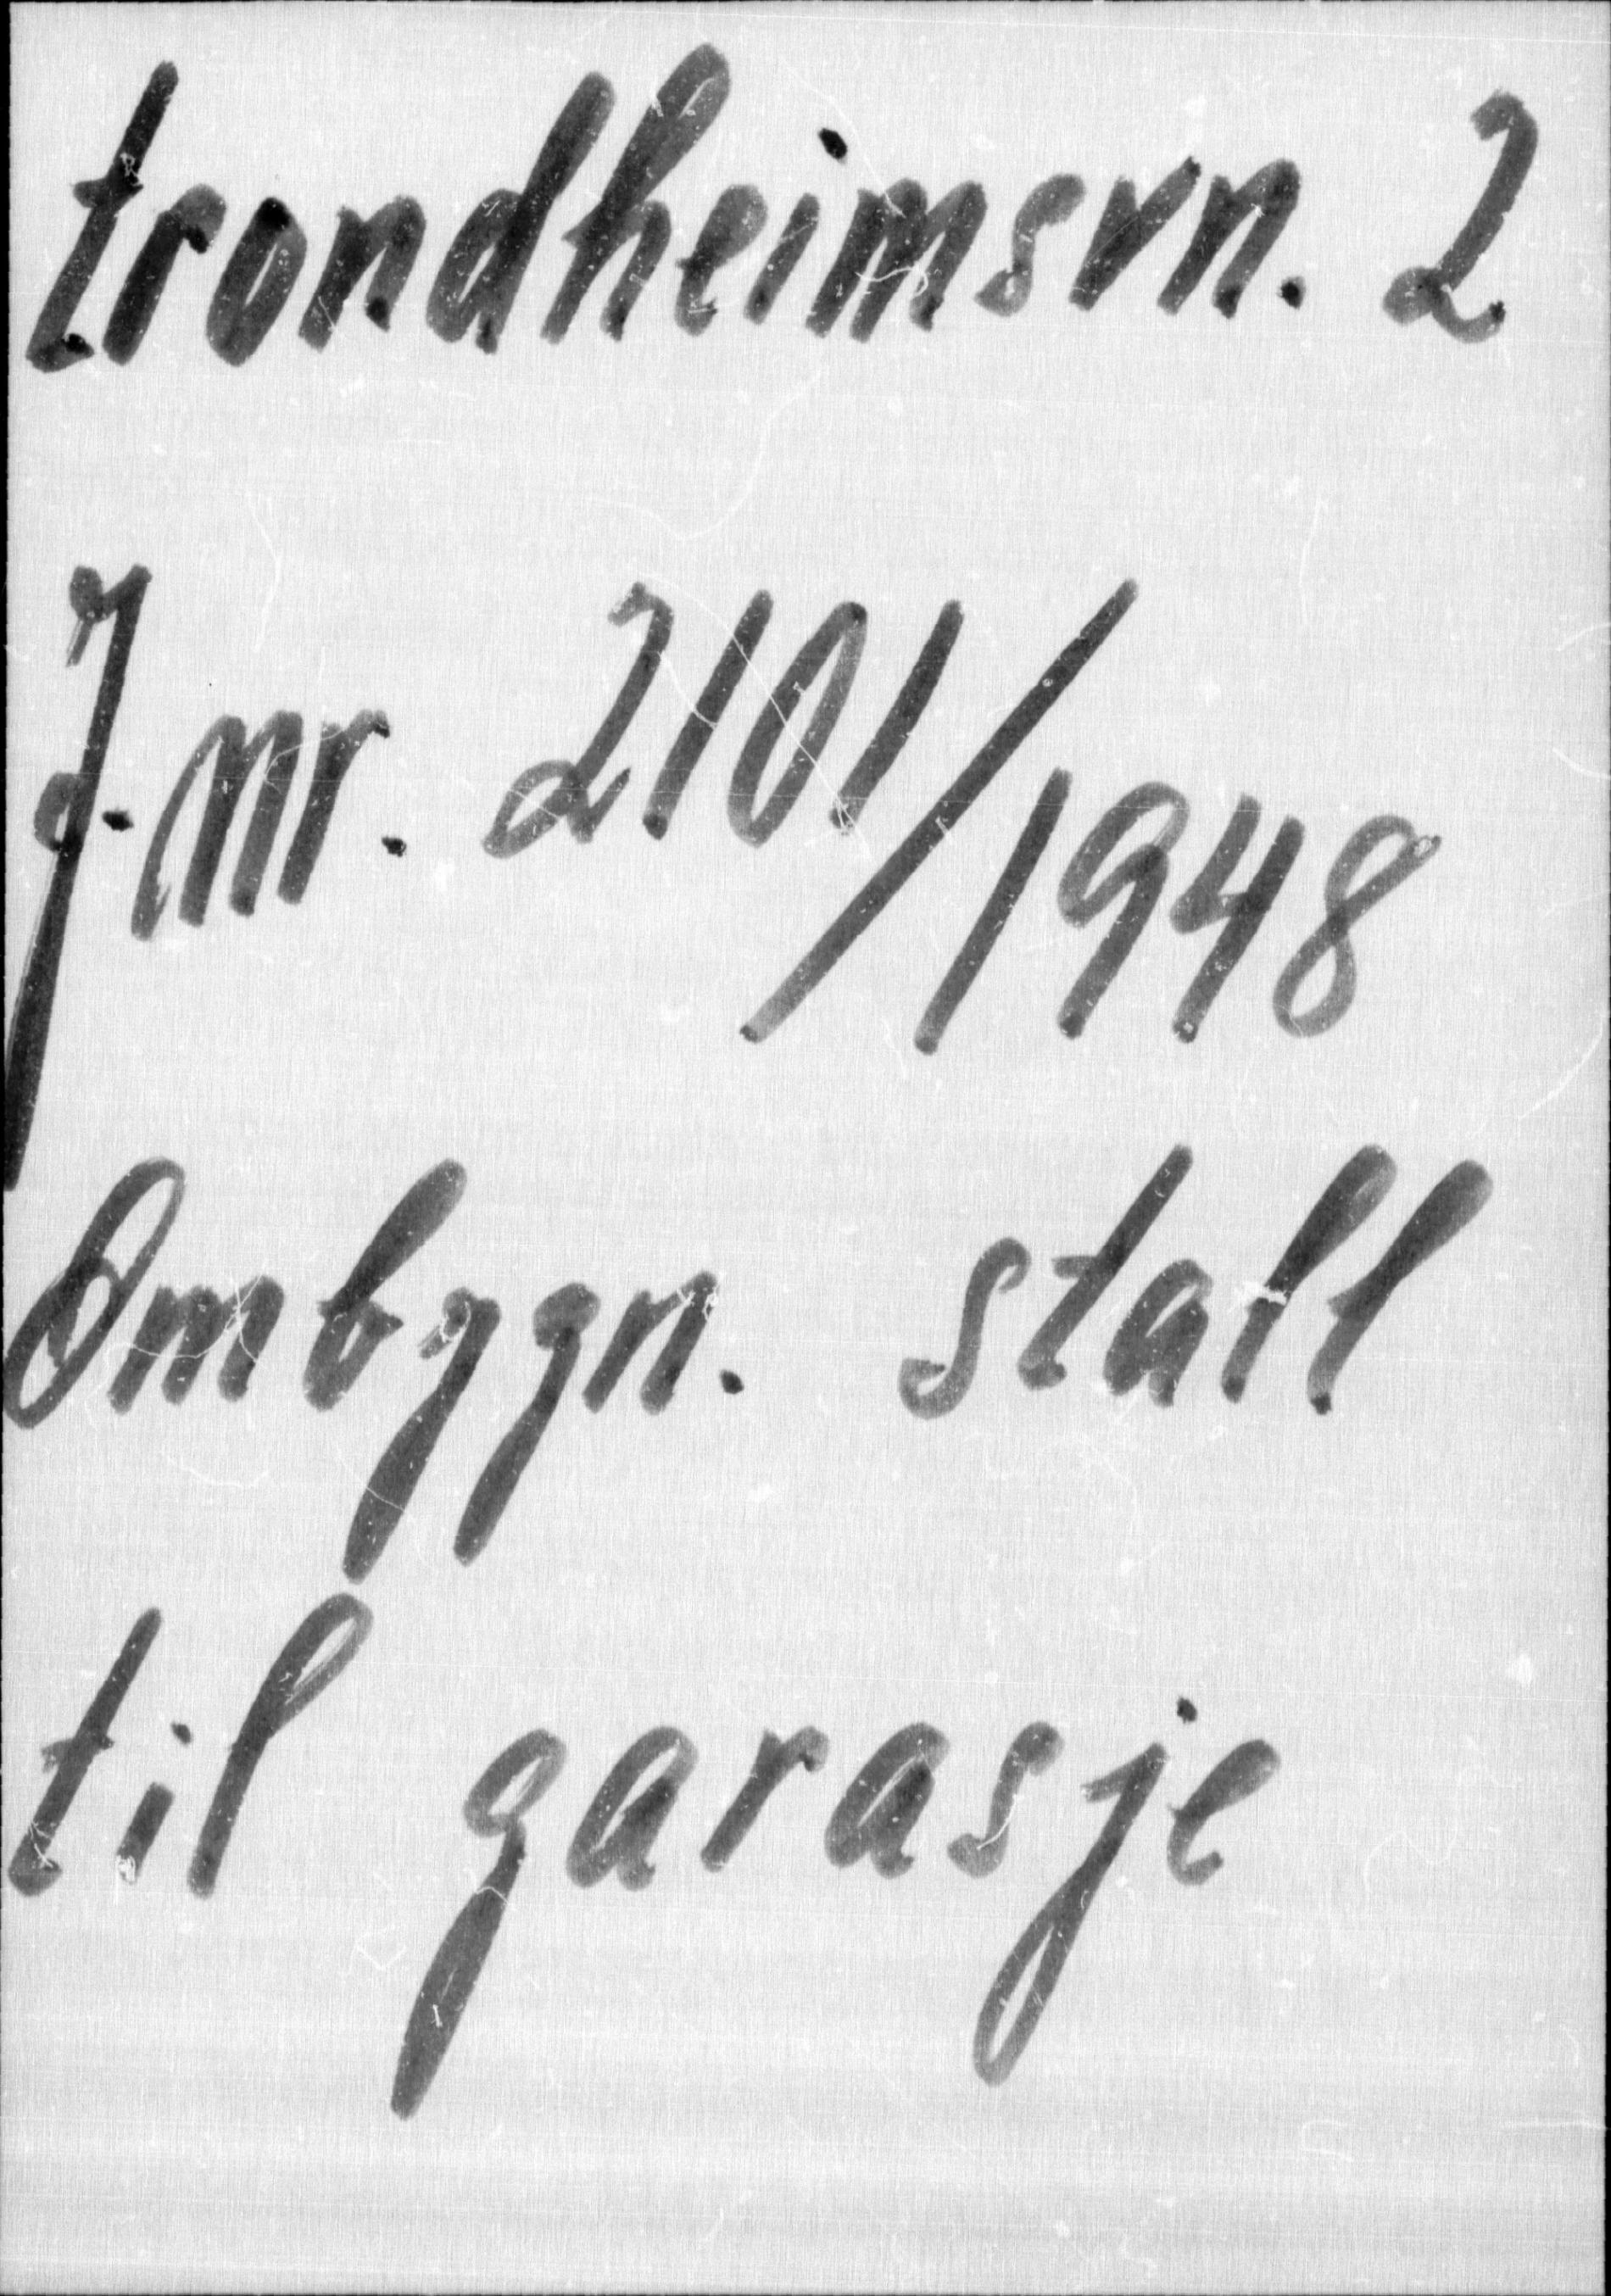 trondheimsvn. 2
J. nr. 2101/1948
Ombygn. stall
til garasje